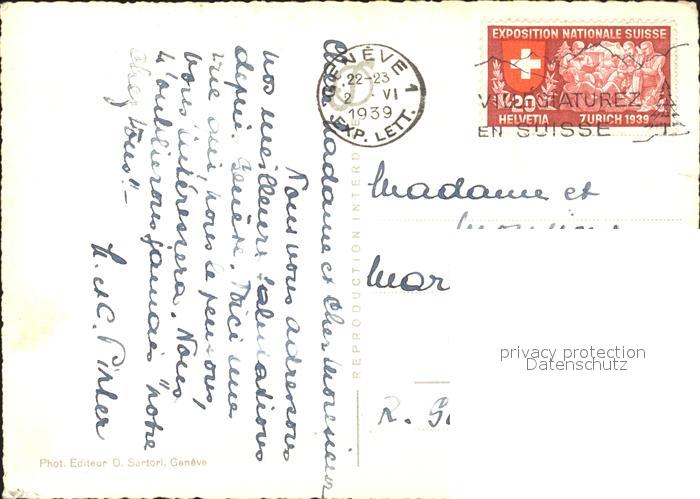 EXPOSITION NATIONALE SUISSE
20
HELVETIA ZURICH 1939
GENÈVE 1
22-23
2 VI
1939
EXP. LETT.
VILLEGIATUREZ
EN SUISSE
Chère Madame et cher Monsieur
Nous vous adressons
nos meilleures salutations
depuis Genève. Voici une
vue qui, nous le pensons,
vous intéressera. Nous
n'oublierons jamais "notre
chez vous". –
Madame et
Mar
R. G
REPRODUCTION INTERD
Phot. Editeur O. Sartori, Genève
privacy protection
Datenschutz